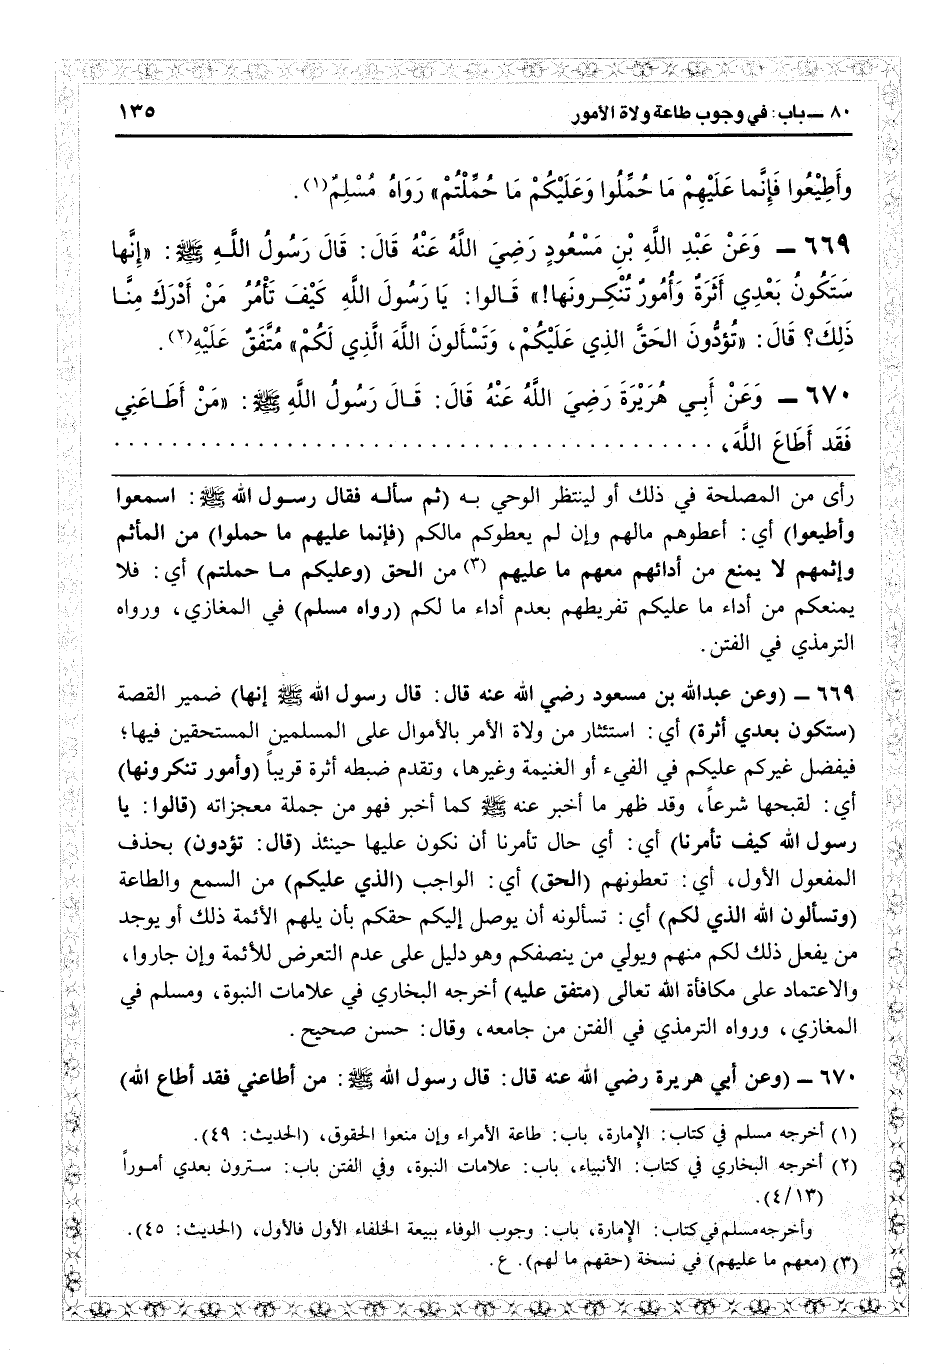 ٨٠ ــ باب: في وجوب طاعة ولاة الأمور ١٣٥
وأَطِيْعُوا فَإِنَّما عَلَيْهِمْ مَا حُمِّلُوا وَعَلَيْكُمْ مَا حُمِّلْتُمْ» رَوَاهُ مُسْلِمٌ(١).
٦٦٩ ــ وَعَنْ عَبْدِ اللَّهِ بْنِ مَسْعُودٍ رَضِيَ اللَّهُ عَنْهُ قَالَ: قَالَ رَسُولُ اللَّهِ ﷺ: «إِنَّها
سَتَكُونُ بَعْدِي أَثَرَةٌ وَأُمُورٌ تُنْكِرونَها!» قَالوا: يَا رَسُولَ اللَّهِ كَيْفَ تَأْمُرُ مَنْ أَدْرَكَ مِنَّا
ذَلِكَ؟ قَالَ: «تُؤدُّونَ الحَقَّ الذِي عَلَيْكُمْ، وَتَسْألونَ اللَّهَ الَّذِي لَكُمْ» مُتَّفَقٌ عَلَيْهِ(٢).
٦٧٠ ــ وَعَنْ أَبِي هُرَيْرَةَ رَضِيَ اللَّهُ عَنْهُ قَالَ: قَالَ رَسُولُ اللَّهِ ﷺ: «مَنْ أَطَاعَنِي
فَقَد أَطَاعَ اللَّهَ، . . . . . . . . . . . . . . . . . . . . . . . . . . . . . . . . . . . . . . . .
رأى من المصلحة في ذلك أو لينتظر الوحي به (ثم سأله فقال رسول الله ﷺ: اسمعوا
وأطيعوا) أي: أعطوهم مالهم وإن لم يعطوكم مالكم (فإنما عليهم ما حملوا) من المأثم
وإثمهم لا يمنع من أدائهم معهم ما عليهم (٣) من الحق (وعليكم ما حملتم) أي: فلا
يمنعكم من أداء ما عليكم تفريطهم بعدم أداء ما لكم (رواه مسلم) في المغازي، ورواه
الترمذي في الفتن.
٦٦٩ ــ (وعن عبدالله بن مسعود رضي الله عنه قال: قال رسول الله ﷺ إنها) ضمير القصة
(ستكون بعدي أثرة) أي: استئثار من ولاة الأمر بالأموال على المسلمين المستحقين فيها؛
فيفضل غيركم عليكم في الفيء أو الغنيمة وغيرها، وتقدم ضبطه أثرة قريباً (وأمور تنكرونها)
أي: لقبحها شرعاً، وقد ظهر ما أخبر عنه ﷺ كما أخبر فهو من جملة معجزاته (قالوا: يا
رسول الله كيف تأمرنا) أي: أي حال تأمرنا أن نكون عليها حينئذ (قال: تؤدون) بحذف
المفعول الأول، أي: تعطونهم (الحق) أي: الواجب (الذي عليكم) من السمع والطاعة
(وتسألون الله الذي لكم) أي: تسألونه أن يوصل إليكم حقكم بأن يلهم الأئمة ذلك أو يوجد
من يفعل ذلك لكم منهم ويولي من ينصفكم وهو دليل على عدم التعرض للأئمة وإن جاروا،
والاعتماد على مكافأة الله تعالى (متفق عليه) أخرجه البخاري في علامات النبوة، ومسلم في
المغازي، ورواه الترمذي في الفتن من جامعه، وقال: حسن صحيح.
٦٧٠ ــ (وعن أبي هريرة رضي الله عنه قال: قال رسول الله ﷺ: من أطاعني فقد أطاع الله)
(١) أخرجه مسلم في كتاب: الإمارة، باب: طاعة الأمراء وإن منعوا الحقوق، (الحديث: ٤٩).
(٢) أخرجه البخاري في كتاب: الأنبياء، باب: علامات النبوة، وفي الفتن باب: سترون بعدي أموراً
(٤/١٣).
وأخرجه مسلم في كتاب: الإمارة، باب: وجوب الوفاء ببيعة الخلفاء الأول فالأول، (الحديث: ٤٥).
(٣) (معهم ما عليهم) في نسخة (حقهم ما لهم). ع.